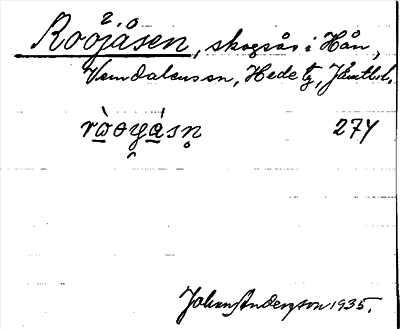 Roöjåsen, skogsås i Hån,
Vemdalens sn, Hede tg, Jämtl. l.
274
Johan Anderzson 1935.